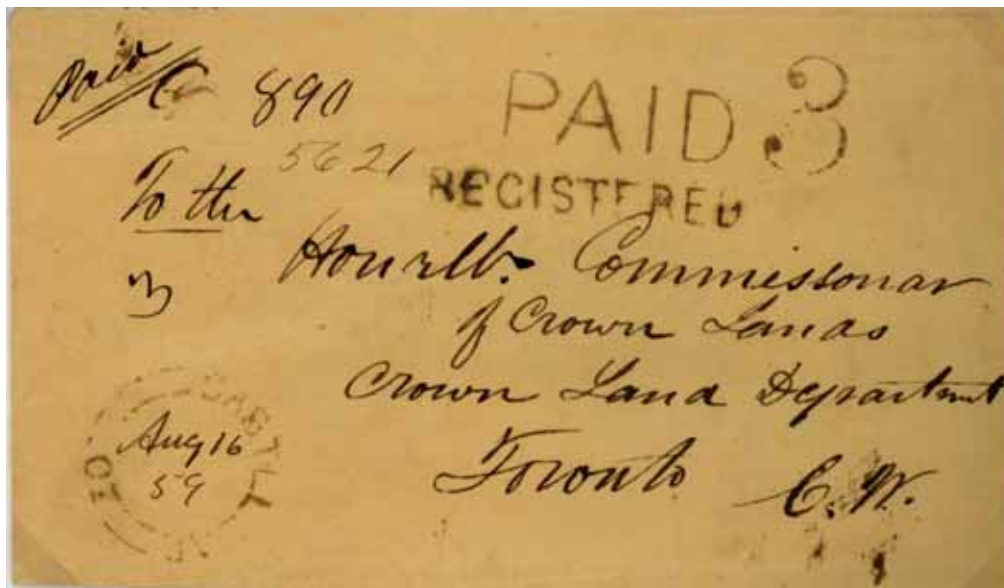 Paid
890
PAID 3
5621
REGISTERED
To the
Honrlb. Commissonar
3
of Crown Lands
Crown Land Department
Aug 16
59
Toronto C.W.